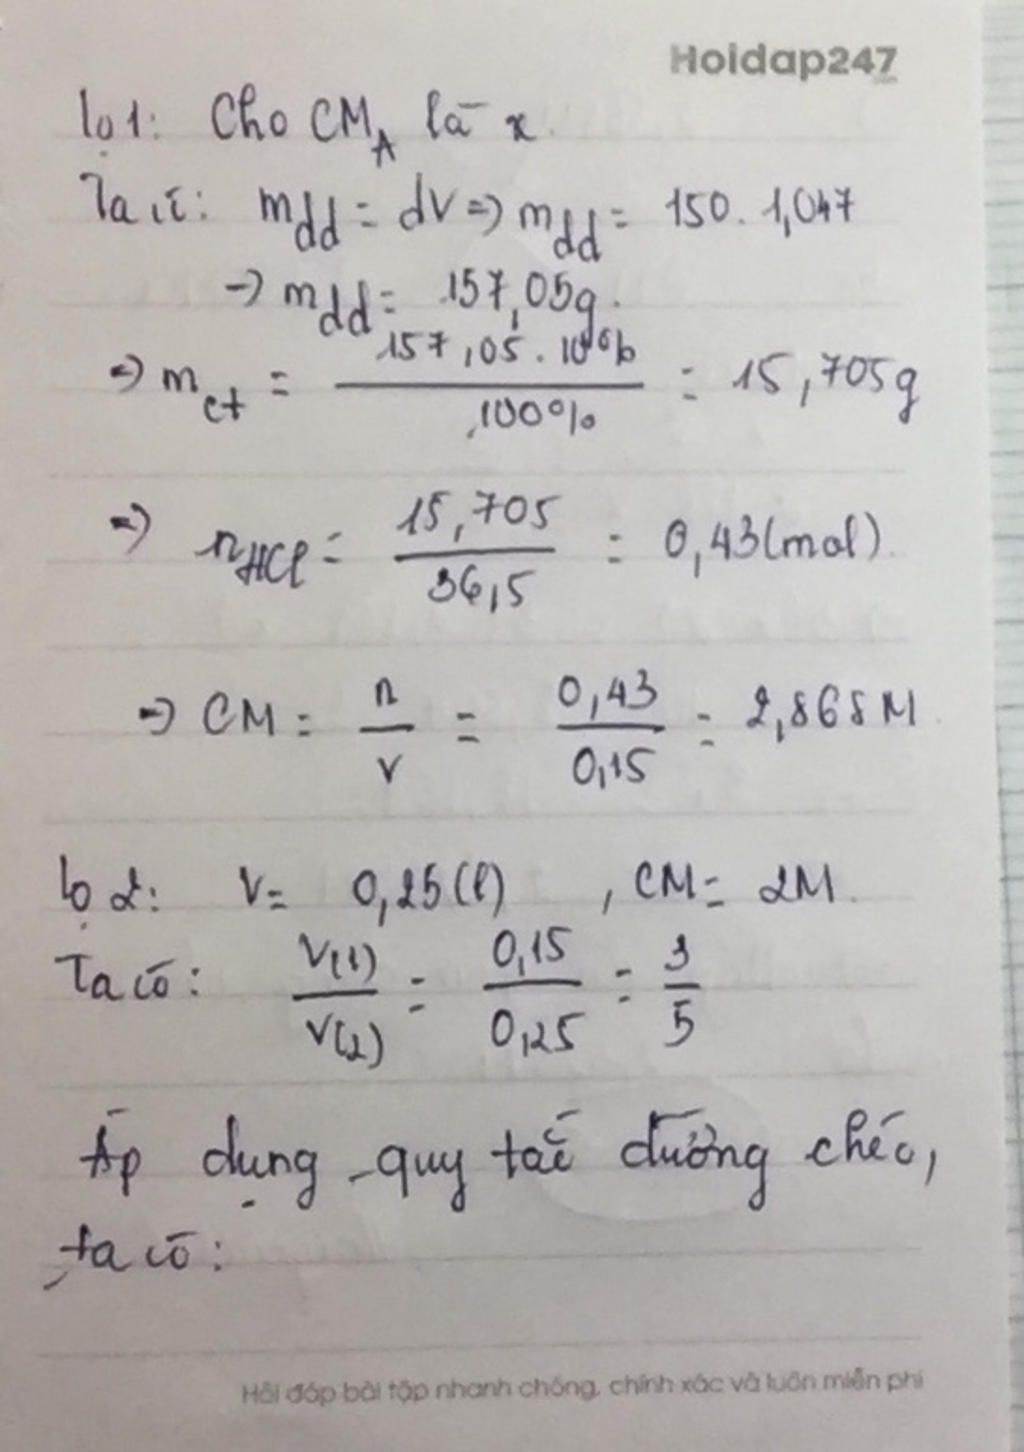 Hoidap247
lọ 1: Cho CM_A là x.
Ta có: mdd = dV => mdd = 150. 1,047
-> mdd = 157,05g.
=> mct = 157,05 . 10% / 100% = 15,705g
=> nHCl = 15,705 / 36,5 = 0,43 (mol).
=> CM = n / v = 0,43 / 0,15 = 2,868M
lọ 2: V = 0,25 (l) , CM = 2M.
Ta có: V(1) / V(2) = 0,15 / 0,25 = 3 / 5
Áp dụng quy tắc đường chéo,
ta có:
Hỏi đáp bài tập nhanh chóng, chính xác và luôn miễn phí